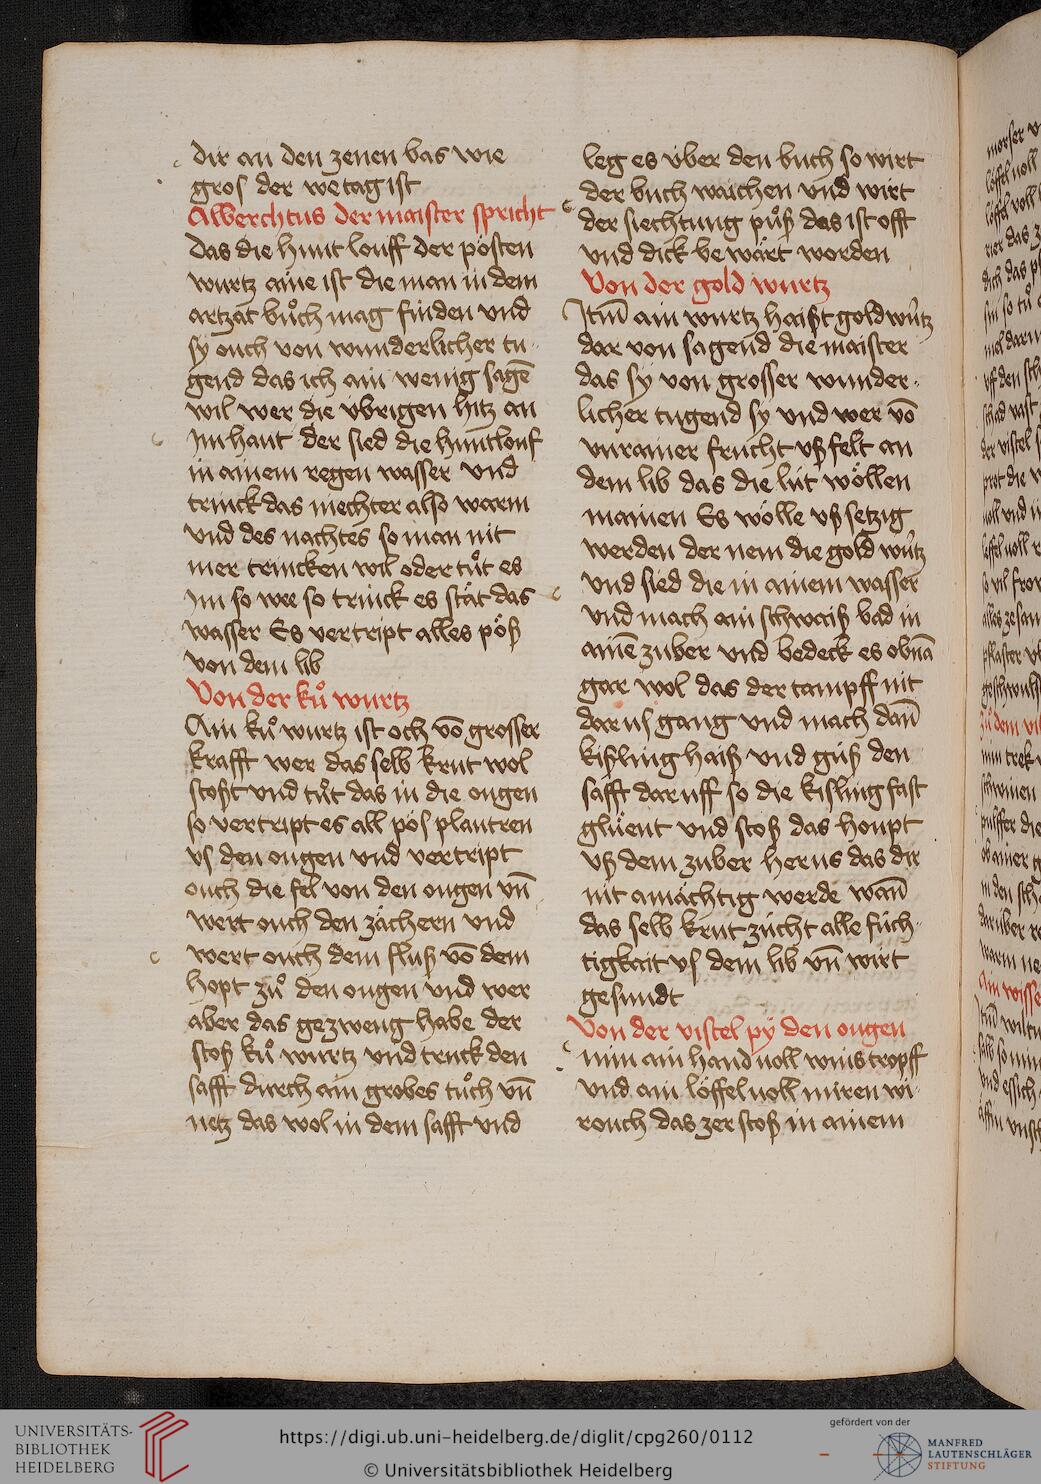 dir an den zenen bas wie
gros der wetag ist
Albrechtus der maister spricht
das die hunt louff der posten
wurtz aine ist die man in dem
artzat bůch mag finden vnd
sy ouch von wunderlicher tu-
gend das ich ain wenig sagē
wil wer die vbrigen hitz an
Im haut der sied die huntlouf
in ainem regen wasser vnd
trinck das niechter also warm
vnd des nachtes so man nit
mer trincken wil oder tůt es
Im so wee so trinck es stät das
wasser Es vertript alles pöß
von dem lib
Von der ků wurtz
Ain ků wurtz ist och vō grosser
krafft wer das selb krut wol
stoßt vnd tůt das in die ougen
so vertript es all pös plantren
vs den ougen vnd vertript
ouch die fel von den ougen vn̄
wert ouch den zächern vnd
wert ouch dem fluß vō dem
hopt zů den ougen vnd wer
aber das gezweng habe der
stoß ků wurtz vnd truck den
safft durch ain grobes tůch vn̄
netz das wol in dem safft vnd
leg es vber den buch so wirt
der buch waichen vnd wirt
der siechtung půß das ist offt
vnd dick bewärt worden
Von der gold wurtz
Itm̄ ain wurtz haißt goldwurtz
dar von sagend die maister
das sy von grosser wunder-
licher tugend sy vnd wer vō
vnrainer frucht vß felt an
dem lib das die lüt wöllen
mainen Es wölle vß setzig
werden der nem die gold wurtz
vnd sied die in ainem wasser
vnd mach ain schwaiß bad in
ainē zuber vnd bedeck es obnā
gar wol das der tampff nit
dar us gang vnd mach dan̄
kißling haiß vnd güß den
safft dar uff so die kisling fast
glüent vnd stoß das houpt
vß dem zuber herus das dir
nit amächtig werde wan̄
das selb krut zücht alle füch-
tigkait vs dem lib vn̄ wirt
gesundt
Von der vistel py den ougen
nim ain hand voll winstropff
vnd ain löffel voll miren wi-
rouch das zer stoß in ainem
UNIVERSITÄTS-
BIBLIOTHEK
HEIDELBERG
https://digi.ub.uni-heidelberg.de/diglit/cpg260/0112
© Universitätsbibliothek Heidelberg
gefördert von der
MANFRED
LAUTENSCHLÄGER
STIFTUNG